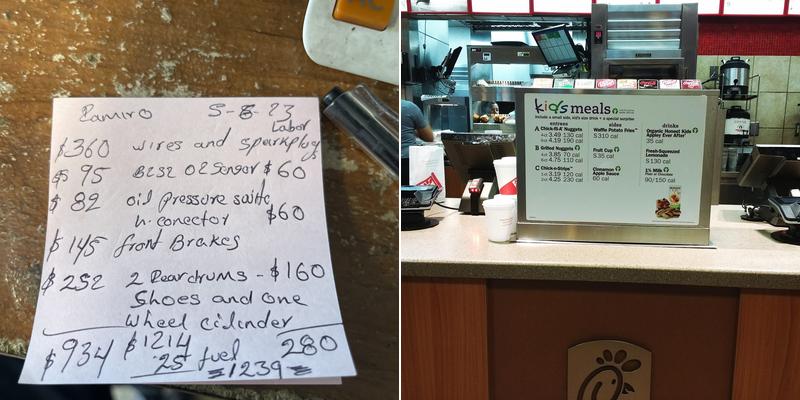 Ramiro 5-8-23
Labor
$360 wires and sparkplugs
$ 95 B2S2 O2 Sensor $60
$ 82 oil pressure switc
h. conector $60
$ 145 front Brakes
$ 252 2 Rear drums - $160
Shoes and one
wheel cilinder
$934 $1214 280
25 fuel
=1239=
kid's meals
include a small side, kid's size drink + a surprise
entrees
A Chick-fil-A Nuggets
4ct 3.49 130 cal
6ct 4.19 190 cal
B Grilled Nuggets
4ct 3.85 70 cal
6ct 4.75 110 cal
C Chick-n-Strips
1ct 3.19 120 cal
2ct 4.25 230 cal
sides
Waffle Potato Fries
S 310 cal
Fruit Cup
S 35 cal
Cinnamon
Apple Sauce
60 cal
drinks
Organic Honest Kids
Appley Ever After
35 cal
Fresh-Squeezed
Lemonade
S 130 cal
1% Milk
Plain or Chocolate
90/150 cal